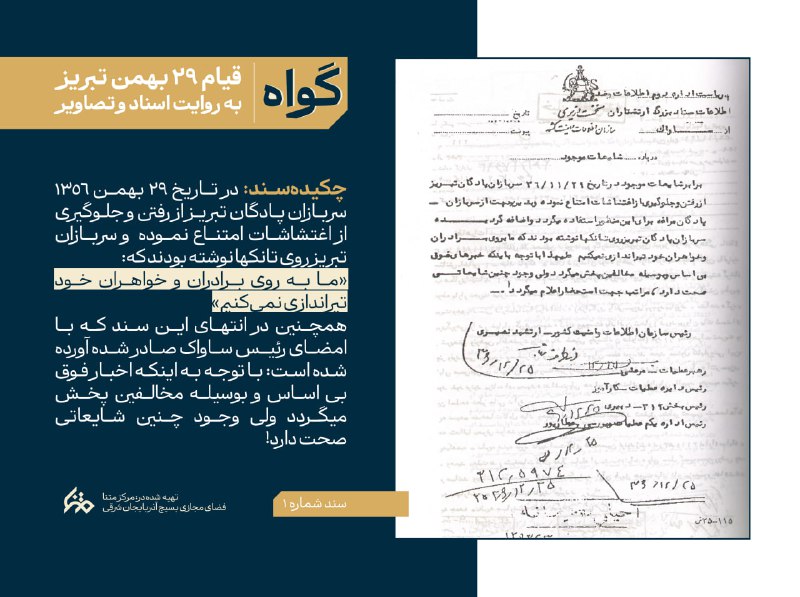 گواه
قیام ۲۹ بهمن تبریز
به روایت اسناد و تصاویر
چکیده سند: در تاریخ ۲۹ بهمن ۱۳۵۶
سربازان پادگان تبریز از رفتن و جلوگیری
از اغتشاشات امتناع نموده و سربازان
تبریز روی تانکها نوشته بودند که:
«ما به روی برادران و خواهران خود
تیراندازی نمی‌کنیم»
همچنین در انتهای این سند که با
امضای رئیس ساواک صادر شده آورده
شده است: با توجه به اینکه اخبار فوق
بی اساس و بوسیله مخالفین پخش
میگردد ولی وجود چنین شایعاتی
صحت دارد!
سند شماره ۱
تهیه شده در: مرکز متنا
فضای مجازی بسیج آذربایجان شرقی
اطلاعات ستاد بزرگ ارتشتاران
نخست وزیری
تاریخ
از ساواک
سازمان اطلاعات و امنیت کشور
پیوست
درباره شایعات موجود
برابر شایعات موجود در تاریخ ۳۶/۱۱/۲۹ سربازان پادگان تبریز
از رفتن و جلوگیری از اغتشاشات امتناع نموده
پادگان مراغه برای این منظور استفاده میگردد و اضافه گردیده
سربازان پادگان تبریز روی تانکها نوشته بودند که ما بروی برادران
و خواهران خود تیراندازی نمیکنیم علیهذا با توجه باینکه خبرهای فوق
بی اساس و بوسیله مخالفین پخش میگردد ولی وجود چنین شایعاتی
صحت دارد، مراتب جهت استحضار اعلام میگردد
رئیس سازمان اطلاعات و امنیت کشور - ارتشبد نصیری
۳۶/۱۲/۲۵
رئیس دایره عملیات
رئیس بخش ۳۱۲
۳۱۲٫۵۹۷۴
۳۶/۱۲/۲۵
۲۵-۱۱۵